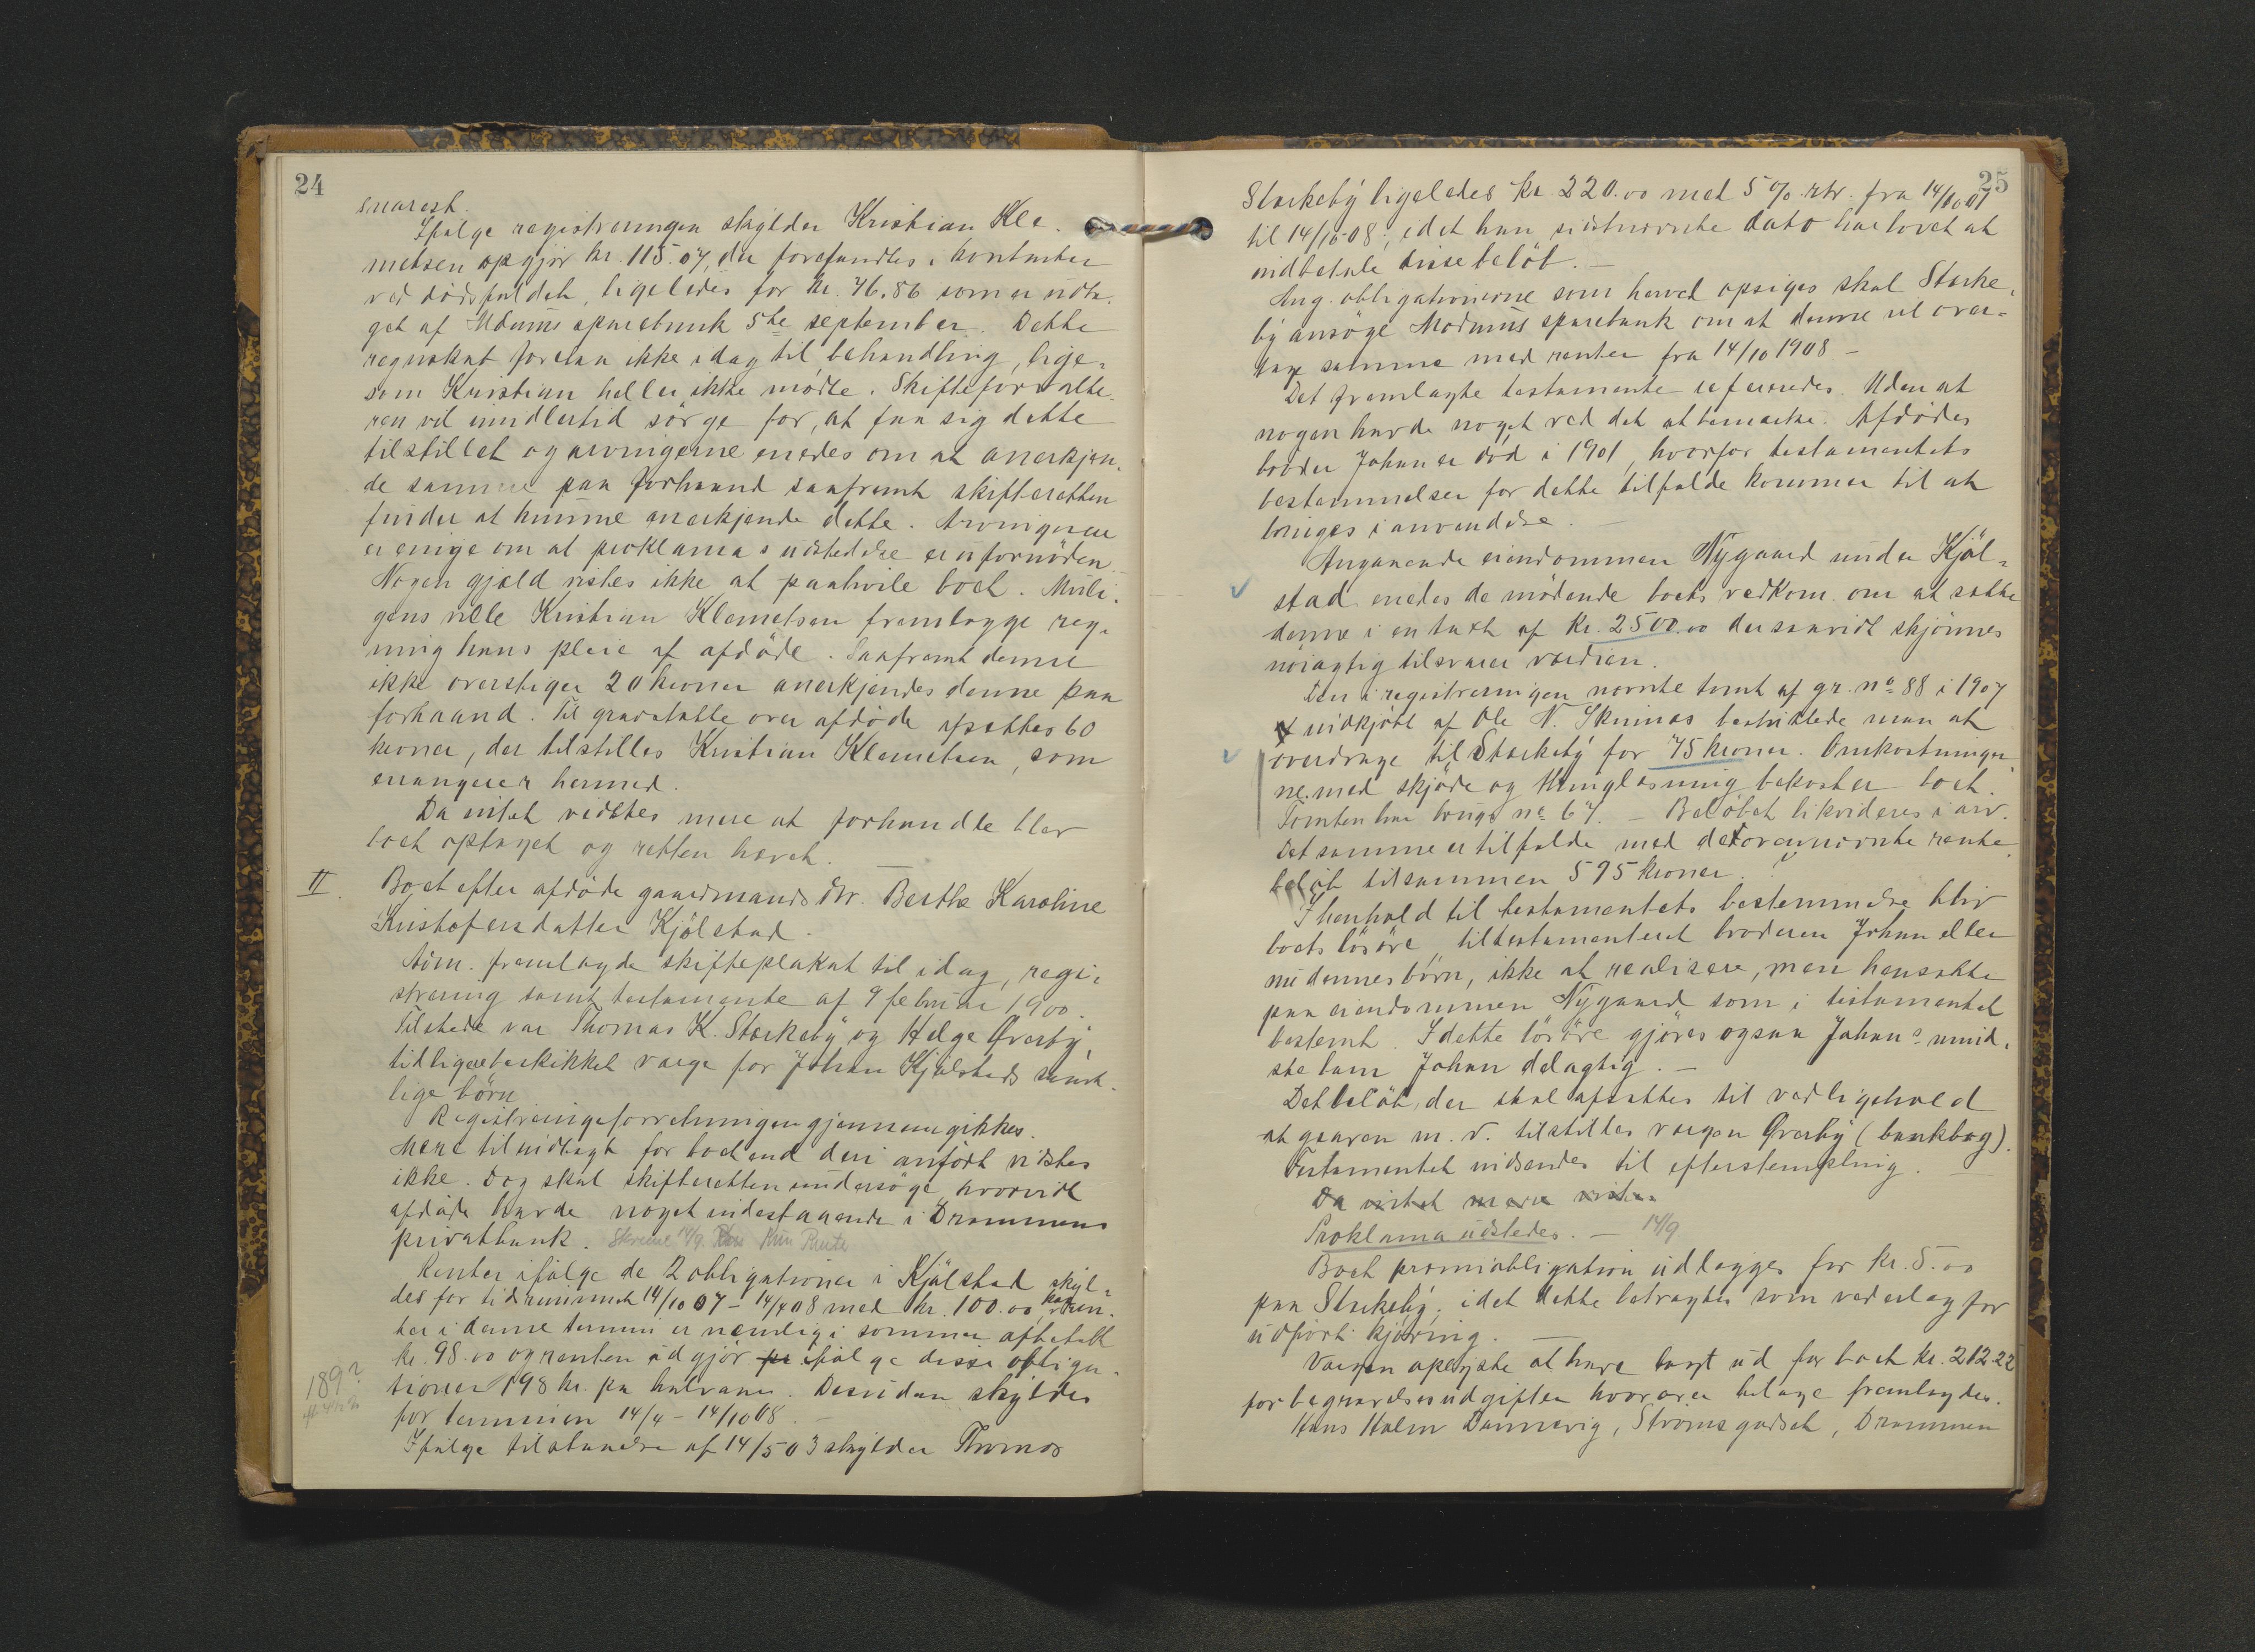 24
snarest.
Ifølge registreringen skylder Kristian Kle-
metsen opgjør kr. 115.07, der forefandtes i kontanter
ved dødsfaldet, ligeledes for kr. 46.86 som er udta-
get af Modums sparebank 5te september. Dette
regnskab forelaa ikke idag til behandling, lige-
som Kristian heller ikke mødte. Skifteforvalte-
ren vil imidlertid sørge for, at faa sig dette
tilstillet og arvingerne enedes om at anerkjen-
de samme paa forhaand saafremt skifteretten
finder at kunne anerkjende dette. Arvingerne
er enige om at proklamas udstedelse er ufornöden.
Nogen gjæld vistes ikke at paahvile boet. Muli-
gens vilde Kristian Klemetsen fremlægge reg-
ning hans pleie af afdøde. Saafremt denne
ikke overstiger 20 kroner anerkjendes denne paa
forhaand. Til gravstøtte over afdøde afsættes 60
kroner, der tilstilles Kristian Klemetsen, som
arrangerer hermed.
Da intet vidstes mere at forhandle blev
boet optaget og retten hævet.
II. Boet efter afdøde gaardmands dtr. Berthe Karoline
Kristofersdatter Kjølstad.
Adm. fremlagde skifteplakat til idag, regi-
strering samt testamente af 9 februar 1900.
Tilstede var Thomas K. Storkeby og Helge Øverby,
tidligere beskikket værge for Johan Kjølstads samt-
lige børn
Registreringsforretningen gjennemgikkes.
Mere tilindtægt for boet end deri anført vidstes
ikke. Dog skal skifteretten undersøge hvorvidt
afdøde havde noget indestaaende i Drammens
privatbank. Skrevet 14/9.
Renter ifølge de 2 obligationer i Kjølstad skyl-
des for tidsrummet 14/10 07 - 14/4 08 med kr. 100.00, paa ren-
ter i denne termin er nemlig i sommer afbetalt
kr. 98.00 og renten udgjør ifølge disse obliga-
tioner 198 kr. pr halvaar. Desuden skyldes
189?
for terminen 14/4 - 14/10 08.
Ifølge tilstaaelse af 14/5 03 skylder Thomas
25
Storkeby ligeledes kr. 220.00 med 5 % rtr. fra 14/10 07
til 14/10-08; idet han sidstnævnte dato har lovet at
indbetale disse beløb. —
Ang. obligationerne som hervd opsiges skal Storke-
by ansöge Modums sparebank om at denne vil over-
tage samme med renter fra 14/10 1908 —
Det fremlagte testamente refereredes. Uden at
nogen havde noget ved det at bemærke. Afdödes
broder Johan er död i 1901, hvorfor testamentets
bestemmelser for dette tilfælde kommer til at
bringes i anvendelse.
Angaaende eiendommen Nygaard under Kjöl-
stad enedes de mödende boets vedkom. om at sætte
denne i en taxt af kr. 2500.00 der saavidt skjönnes
nöiagtig tilsvarer værdien.
Den i registreringen nævnte tomt af gr. no 88 i 1907
indkjöbt af Ole N. Skuinas besluttede man at
overdrage til Storkeby for 75 kroner. Omkostninger-
ne med skjöde og thinglæsning bekoster boet.
Tomten har brugs no 67. — Belöbet likvideres i arv.
Det samme er tilfælde med de forannævnte rente
belöb tilsammen 595 kroner.
I henhold til testamentets bestemmelse blir
boets lösöre, tiltestamenteret broderen Johan eller
nu dennes börn, ikke at realisere, men hensætte
paa eiendommen Nygaard som i testamentet
bestemt. I dette lösöre gjöres ogsaa Johans umid-
ste barn Johan delagtig. —
Det belöb, der skal afsættes til vedligehold
at gaarden m. v. tilstilles værgen Øverby (bankbog).
Testamentet indsendes til efterstempling. —
Da intet mere vistes
Proklama udstedes. — 14/9
Boets præmieobligation udlægges for kr. 5.00
paa Storkeby, idet dette betragtes som vederlag for
udført kjøring. —
Værgen oplyste at have lagt ud for boet kr. 212.22
for begravelsesudgifter hvorover bilage fremlagdes.
Hans Halm Dannevig, Strømsgodset, Drammen